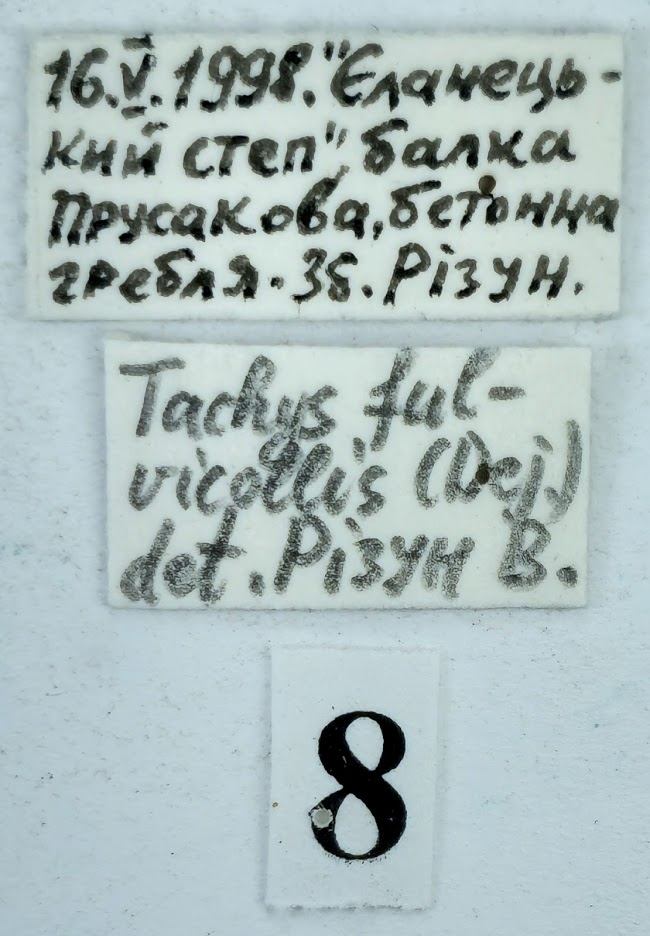 16.V.1998."Єланець-
кий степ", балка
Прусакова, бетонна
гребля. Зб. Різун.
Tachys ful-
vicollis (Dej)
det. Різун В.
8